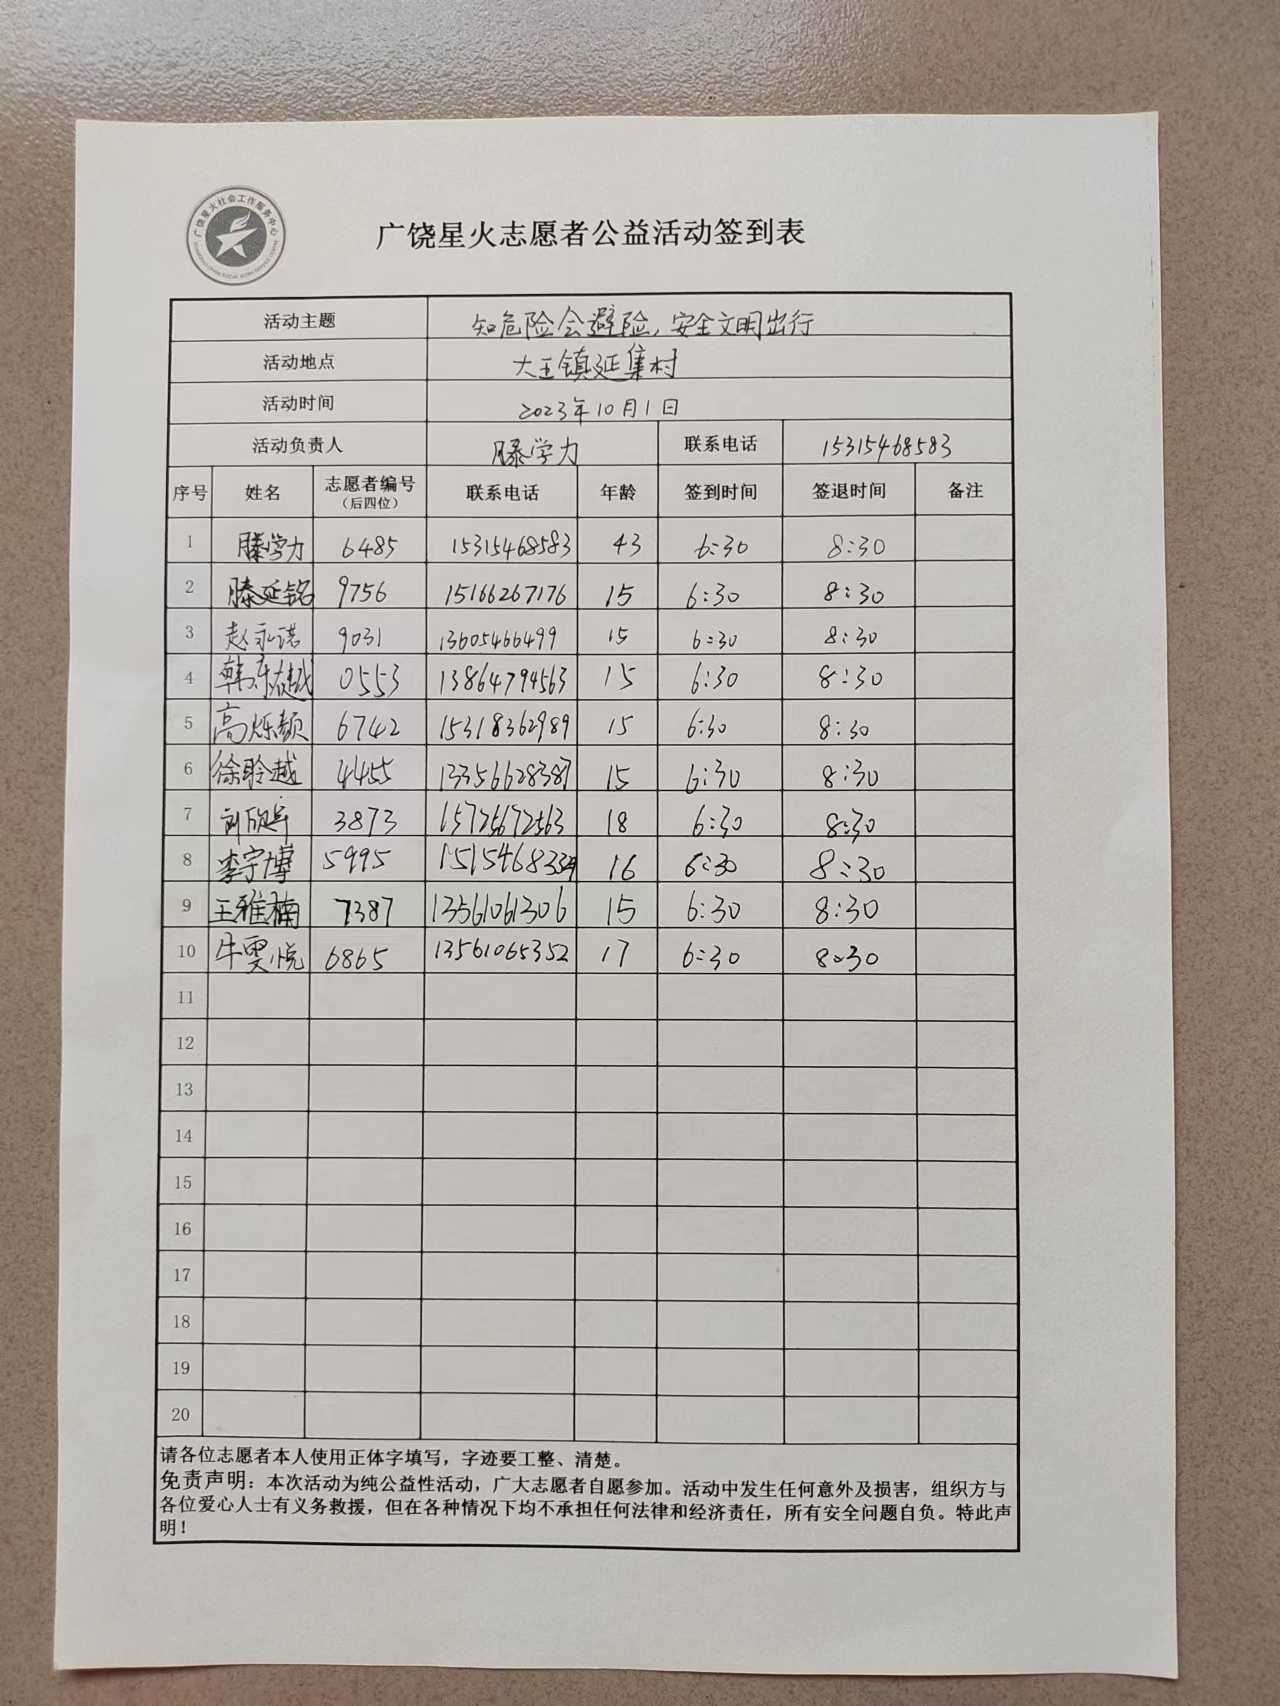 广饶星火社会工作服务中心
广饶星火志愿者公益活动签到表
活动主题 知危险会避险,安全文明出行
活动地点 大王镇延集村
活动时间 2023年10月1日
活动负责人 滕学力 联系电话 15315468583
序号 姓名 志愿者编号 联系电话 年龄 签到时间 签退时间 备注
(后四位)
1 滕学力 6485 15315468583 43 6:30 8:30
2 滕延铭 9756 15166267176 15 6:30 8:30
3 赵永诺 9031 13605466499 15 6:30 8:30
4 0553 13864794563 15 6:30 8:30
5 高烁颜 6742 15318362989 15 6:30 8:30
6 徐聆越 4455 13356628387 15 6:30 8:30
7 3873 15725672563 18 6:30 8:30
8 李宇博 5995 6:30 16 8:30
9 王雅楠 7387 13561061306 15 6:30 8:30
10 牛雯悦 6865 13561065352 17 6:30 8:30
11
12
13
14
15
16
17
18
19
20
请各位志愿者本人使用正体字填写,字迹要工整、清楚。
免责声明:本次活动为纯公益性活动,广大志愿者自愿参加。活动中发生任何意外及损害,组织方与
各位爱心人士有义务救援,但在各种情况下均不承担任何法律和经济责任,所有安全问题自负。特此声
明!